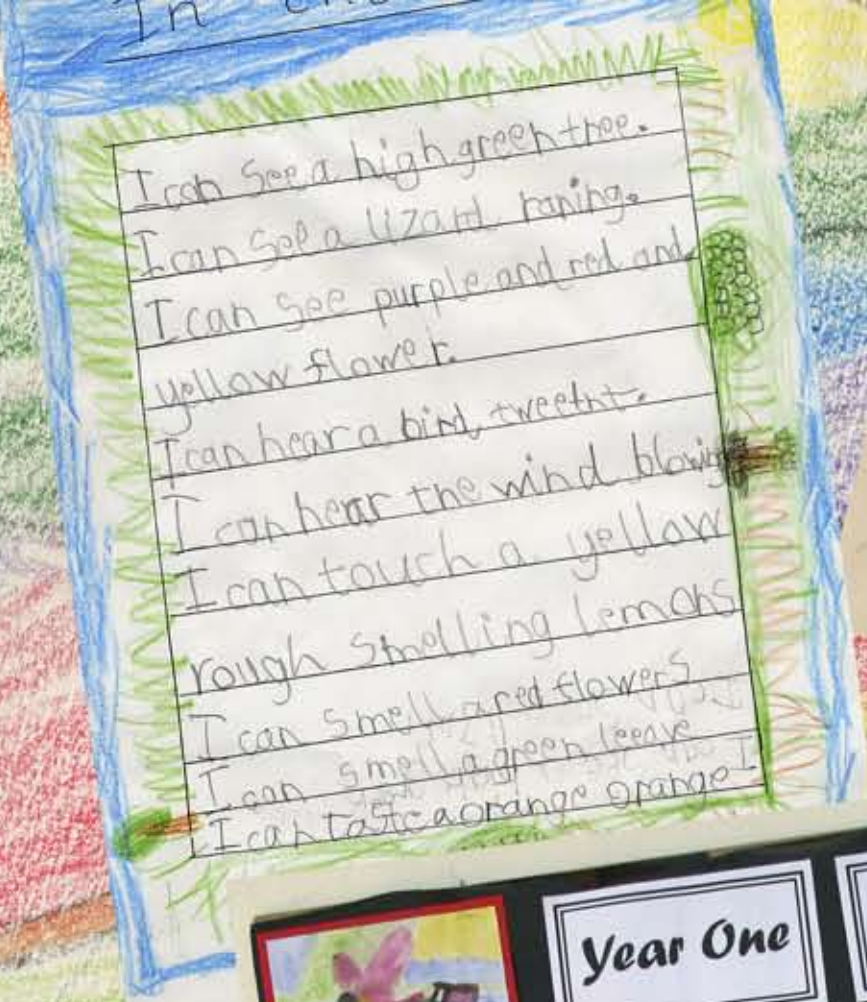 In
I can see a high green tree.
I can see a lizard raning.
I can see purple and red and
yellow flower.
I can hear a bird tweetnt.
I can hear the wind blowig
I can touch a yellow
rough smelling lemons
I can smell a red flowers
I can smell a green leeave
I can taste a orange orange
Year One